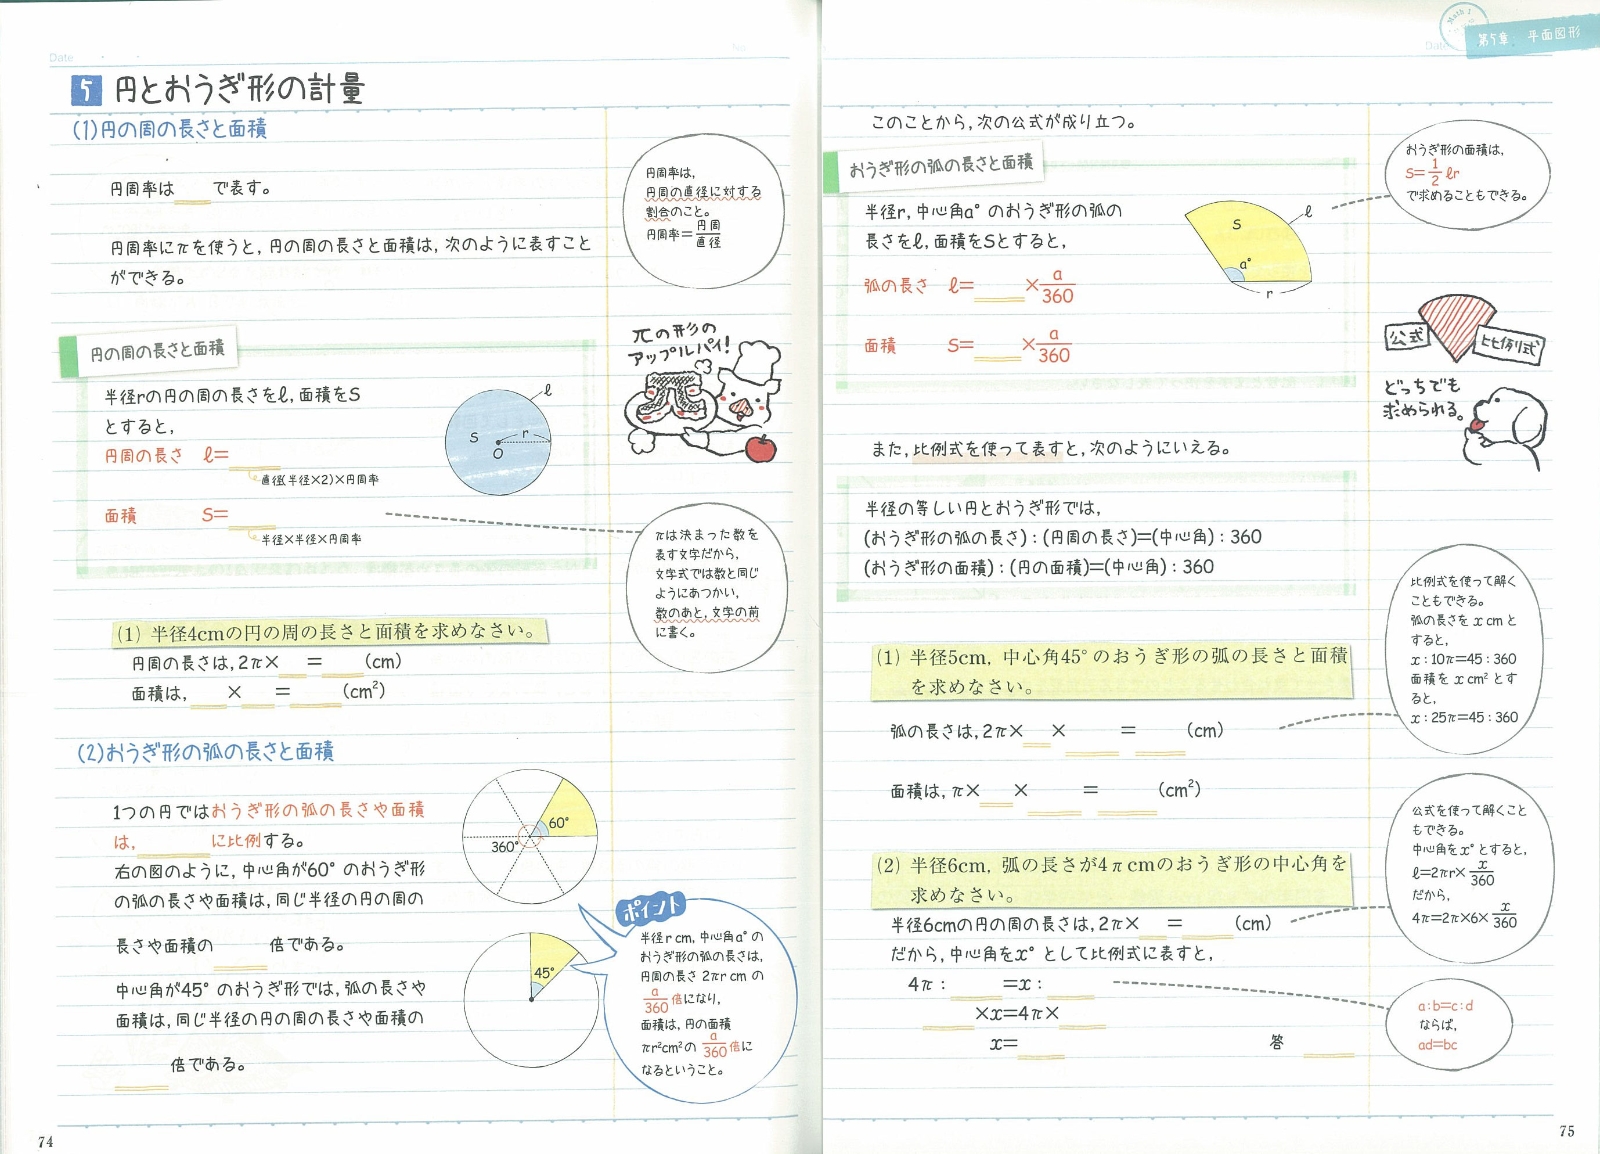 Date
No.
5 円とおうぎ形の計量
(1)円の周の長さと面積
円周率は で表す。
円周率にπを使うと,円の周の長さと面積は,次のように表すこと
ができる。
円周率は,
円周の直径に対する
割合のこと。
円周率=円周/直径
円の周の長さと面積
半径rの円の周の長さをℓ,面積をS
とすると,
円周の長さ ℓ=
直径(半径×2)×円周率
面積 S=
半径×半径×円周率
S r O ℓ
πの形の
アップルパイ!
πは決まった数を
表す文字だから,
文字式では数と同じ
ようにあつかい,
数のあと,文字の前
に書く。
(1) 半径4cmの円の周の長さと面積を求めなさい。
円周の長さは,2π× = (cm)
面積は, × = (cm²)
(2)おうぎ形の弧の長さと面積
1つの円ではおうぎ形の弧の長さや面積
は, に比例する。
右の図のように,中心角が60°のおうぎ形
の弧の長さや面積は,同じ半径の円の周の
長さや面積の 倍である。
中心角が45°のおうぎ形では,弧の長さや
面積は,同じ半径の円の周の長さや面積の
倍である。
60°
360°
45°
ポイント
半径r cm,中心角a°の
おうぎ形の弧の長さは,
円周の長さ 2πr cm の
a/360 倍になり,
面積は,円の面積
πr²cm²の a/360 倍に
なるということ。
74
Math 1
Date
第5章 平面図形
このことから,次の公式が成り立つ。
おうぎ形の弧の長さと面積
半径r,中心角a°のおうぎ形の弧の
長さをℓ,面積をSとすると,
弧の長さ ℓ= ×a/360
面積 S= ×a/360
S ℓ a° r
おうぎ形の面積は,
S=1/2 ℓr
で求めることもできる。
公式
比例式
どっちでも
求められる。
また,比例式を使って表すと,次のようにいえる。
半径の等しい円とおうぎ形では,
(おうぎ形の弧の長さ):(円周の長さ)=(中心角):360
(おうぎ形の面積):(円の面積)=(中心角):360
(1) 半径5cm,中心角45°のおうぎ形の弧の長さと面積
を求めなさい。
弧の長さは,2π× × = (cm)
面積は,π× × = (cm²)
比例式を使って解く
こともできる。
弧の長さを x cm と
すると,
x:10π=45:360
面積を x cm² とす
ると,
x:25π=45:360
(2) 半径6cm,弧の長さが4πcmのおうぎ形の中心角を
求めなさい。
半径6cmの円の周の長さは,2π× = (cm)
だから,中心角をx°として比例式に表すと,
4π: =x:
×x=4π×
x=
答
公式を使って解くこと
もできる。
中心角をx°とすると,
ℓ=2πr×x/360
だから,
4π=2π×6×x/360
a:b=c:d
ならば,
ad=bc
75